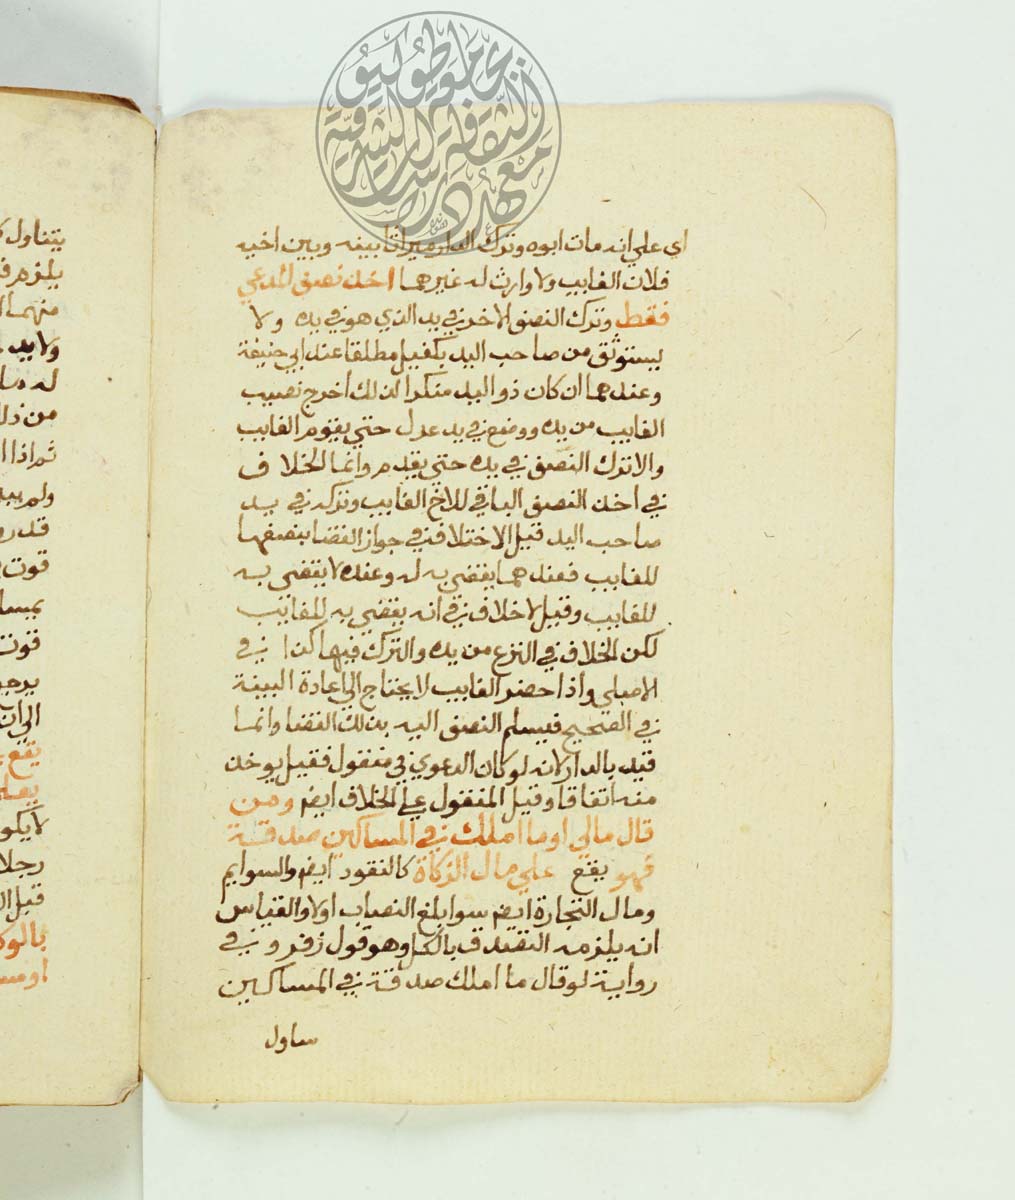 اي علي انه مات ابوه وترك الدار ميراثا بينه وبين اخيه
فلان الغايب ولا وارث له غيرهما اخذ نصف المدعي
فقط وترك النصف الاخر في يد الذي هو في يده ولا
يستوثق من صاحب اليد بكفيل مطلقا عند ابي حنيفة
وعندهما ان كان ذو اليد منكرا لذلك أخرج نصيب
الغايب من يده ووضع في يد عدل حتي يقوم الغايب
والا ترك النصف في يده حتي يقدم وانما الخلاف
في اخذ النصف الباقي للاخ الغايب وتركه في يد
صاحب اليد قيل الاختلاف في جواز القضا بنصفها
للغايب فعندهما يقضي به له وعنده لا يقضي به
للغايب وقيل لا خلاف في انه يقضي به للغايب
لكن الخلاف في النزع من يده والترك فيها كذا في
الاصلي واذا حضر الغايب لا يحتاج الي اعادة البينة
في الصحيح فيسلم النصف اليه بذلك القضا وانما
قيد بالدار لانه لو كان الدعوي في منقول فقيل يوخذ
منه اتفاقا وقيل المنقول علي الخلاف ايض ومن
قال مالي او ما املك في المساكين صدقة
فهو يقع علي مال الزكاة كالنقود ايض والسوايم
ومال التجارة ايض سوا بلغ النصاب اولا والقياس
انه يلزمه التصدق بالكل وهو قول زفر وفي
رواية لو قال ما املك صدقة في المساكين
يتناول
يلزمه
منهما
ولا بد
من ذلك
ثم اذا
الي ان
يقع
رجلا
قبل